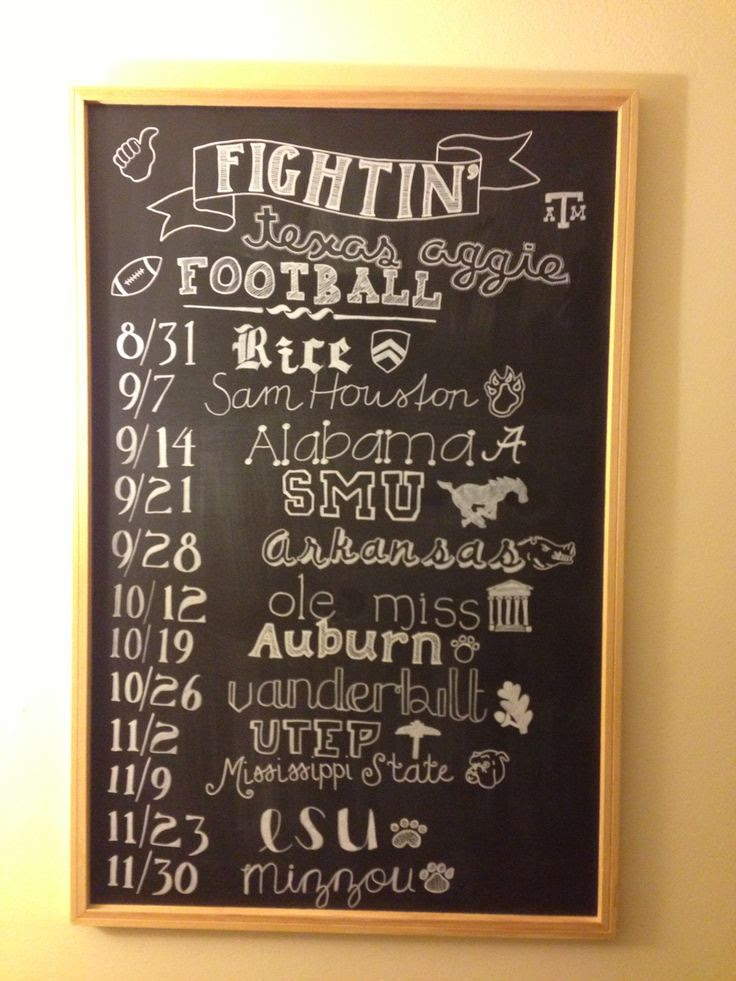 FIGHTIN'
ATM
texas aggie
FOOTBALL
8/31 Rice
9/7 Sam Houston
9/14 Alabama A
9/21 SMU
9/28 Arkansas
10/12 ole miss
10/19 Auburn
10/26 vanderbilt
11/2 UTEP
11/9 Mississippi State
11/23 lsu
11/30 mizzou